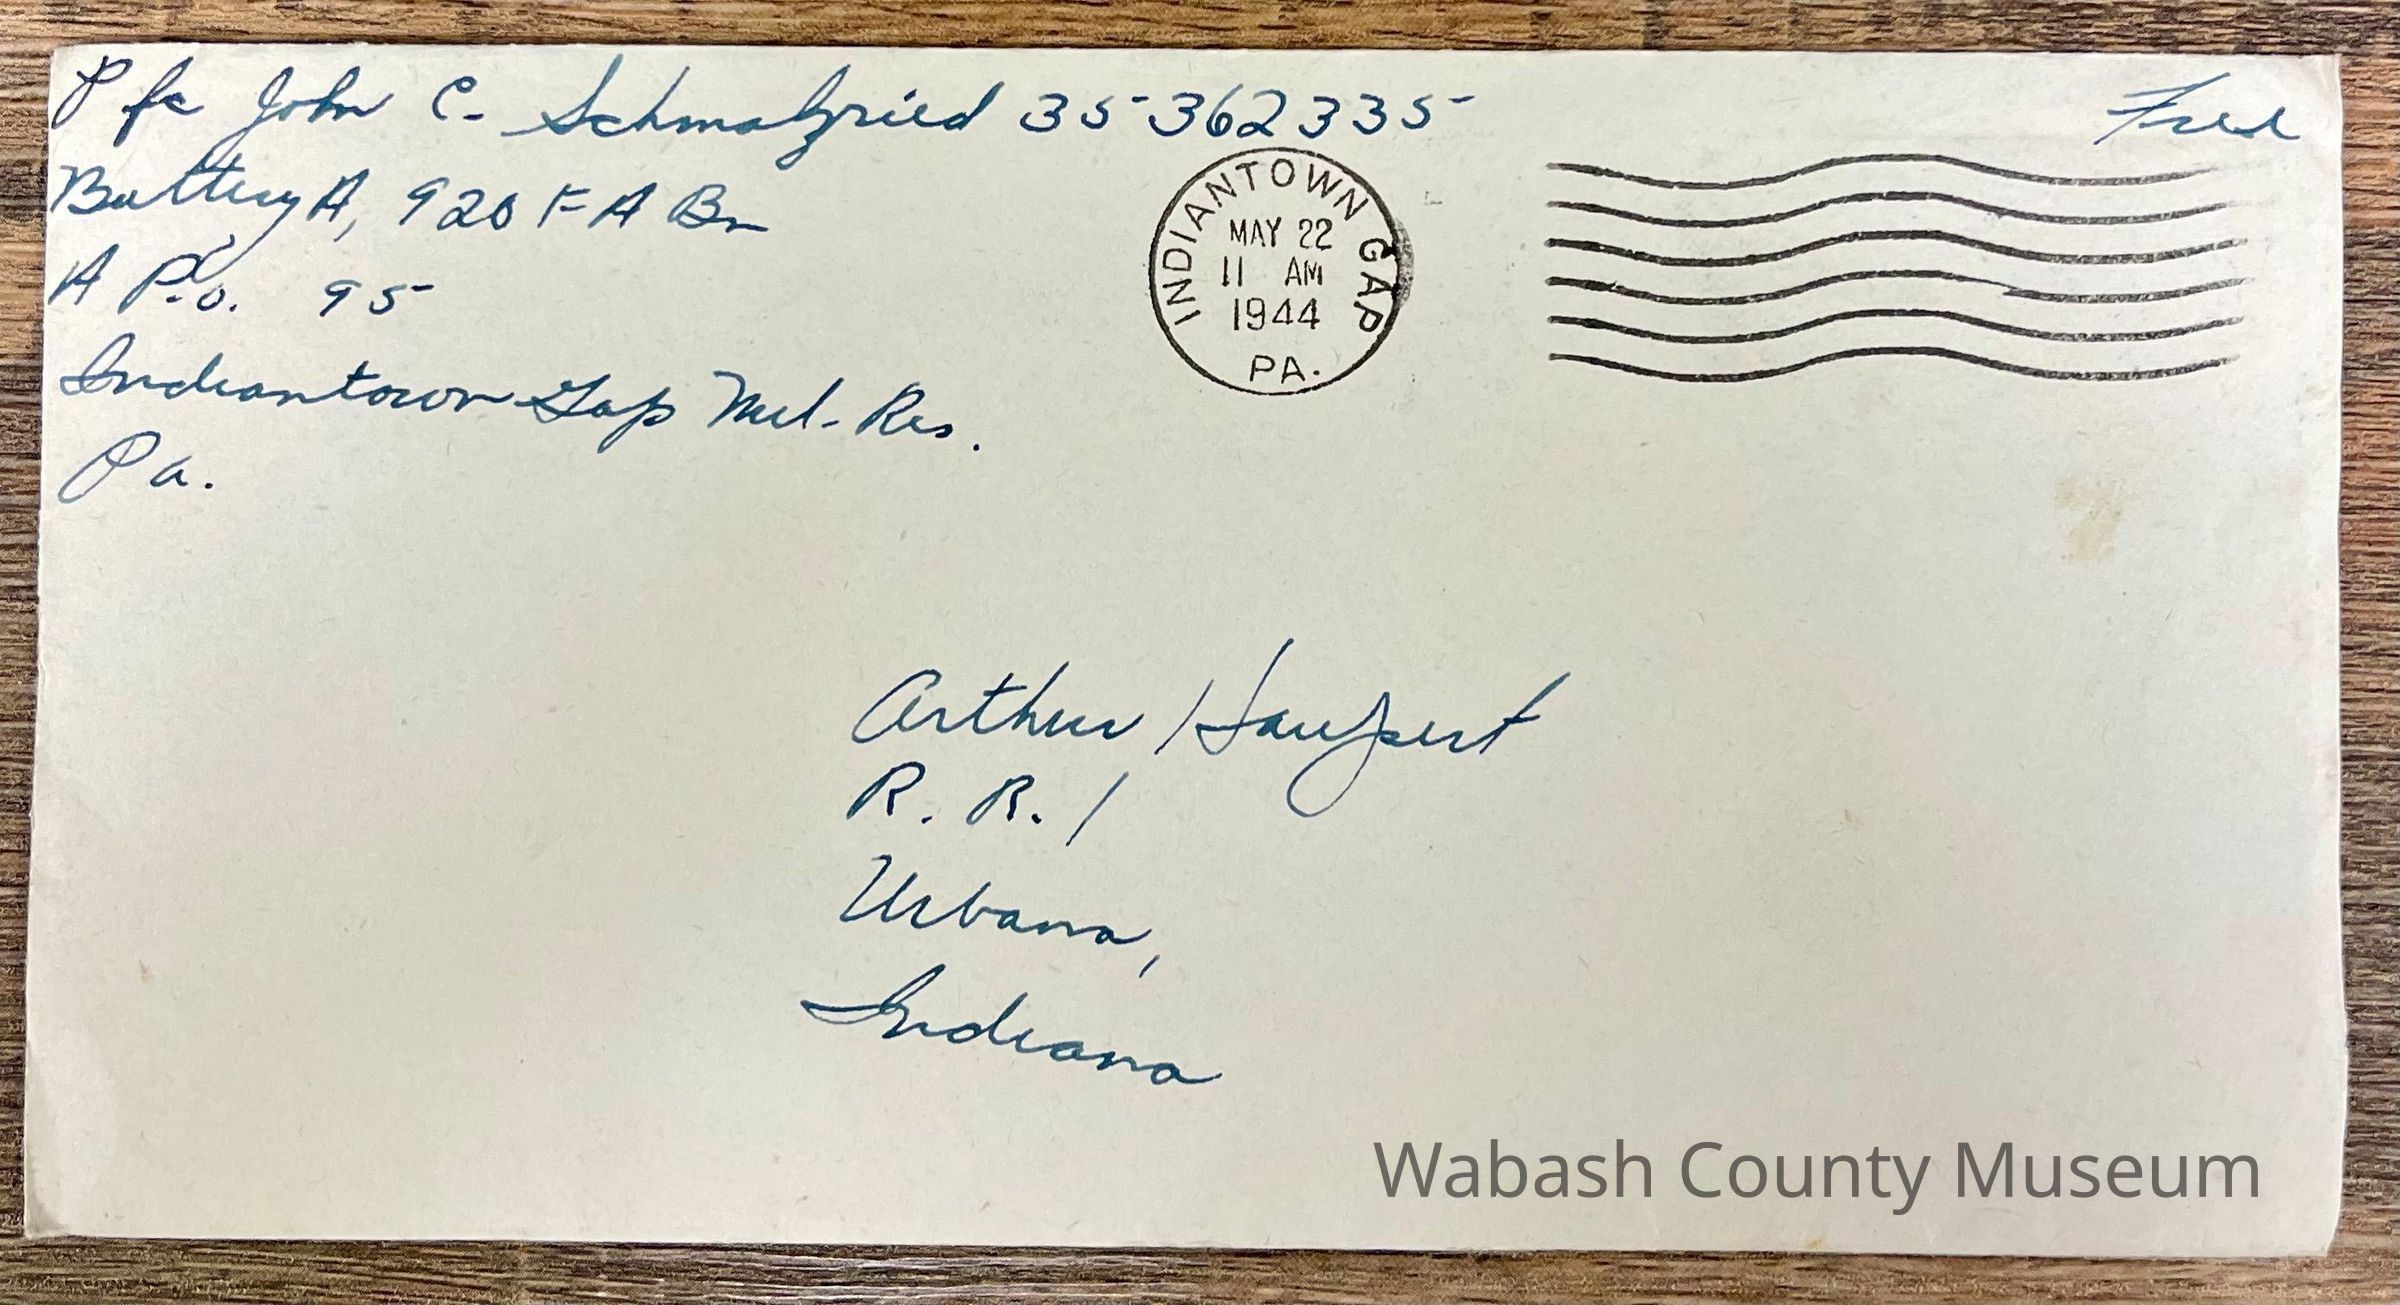 Pfc John C. Schmalzried 35362335
Free
Battery A, 920 F A Bn
A P.O. 95
Indiantown Gap Mil. Res.
Pa.
INDIANTOWN GAP
MAY 22
11 AM
1944
PA.
Arthur Haupert
R. R. 1
Urbana,
Indiana
Wabash County Museum